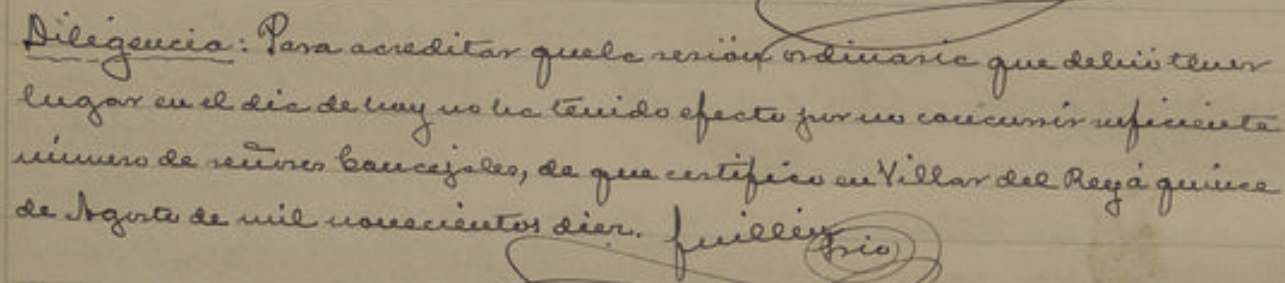 Diligencia: Para acreditar que la sesión ordinaria que debió tener
lugar en el dia de hoy no ha tenido efecto por no concurrir suficiente
número de señores Concejales, de que certifico en Villar del Rey á quince
de Agosto de mil novecientos diez. Guillén
Srio